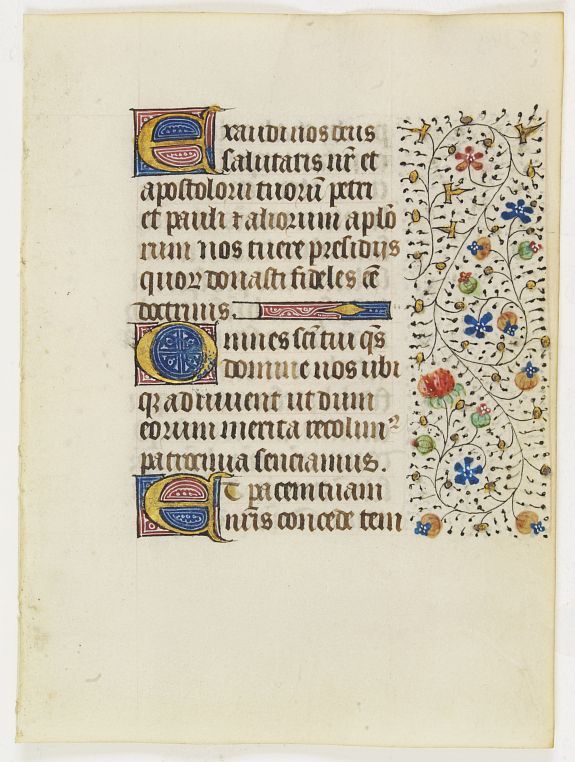 Exaudi nos deus
salutaris nr̄ et
apostoloru tuorū petri
et pauli ⁊ aliorum aplo̅
rum nos tuere presidijs
quoꝝ donasti fideles eē
doctrinis.
Omnes sc̄i tui q̄s
domine nos ubi
qꝫ adiuuent ut dum
eorum merita recolimꝰ
patrocinia senciamus.
Et pacem tuam
nr̄is concede tem